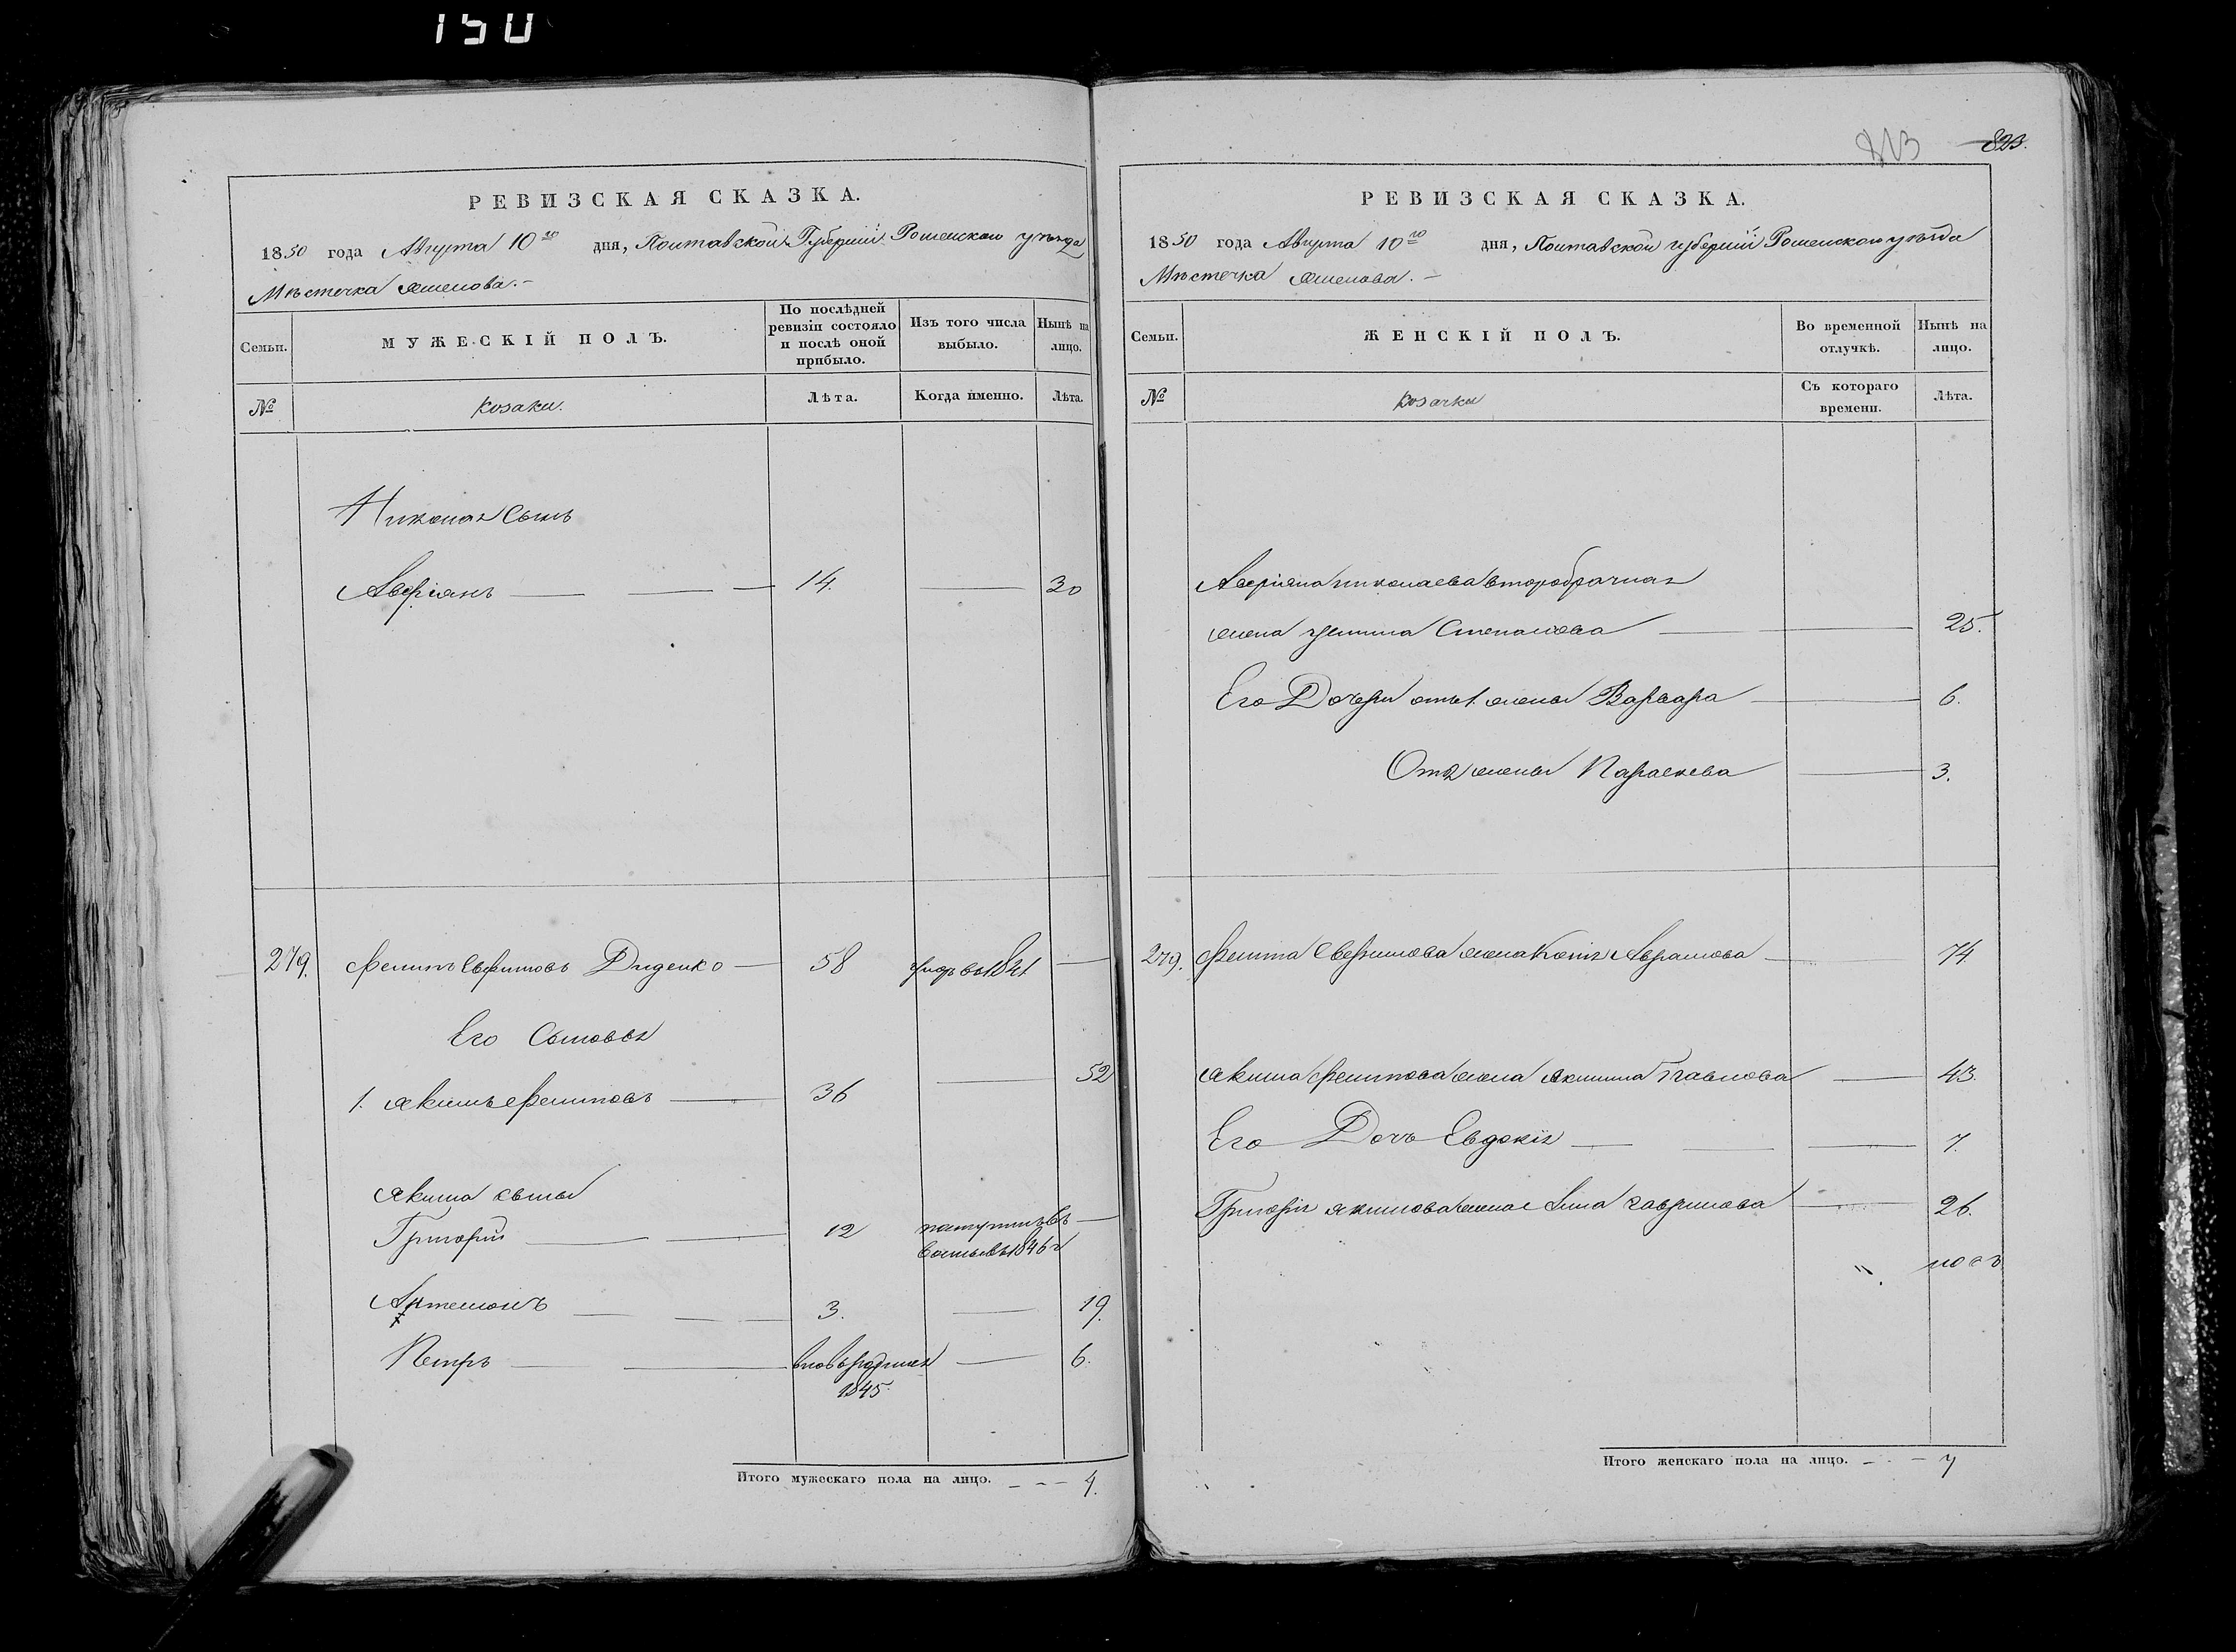 150
РЕВИЗСКАЯ СКАЗКА.
1850 года Августа 10го дня, Полтавской Губерніи Роменскаго уѣзда
Мѣстечка
Семьи.
МУЖЕСКІЙ ПОЛЪ.
По послѣдней ревизіи состояло и послѣ оной прибыло.
Изъ того числа выбыло.
Нынѣ на лицо.
№
козаки.
Лѣта.
Когда именно.
Лѣта.
Николая Сынъ
Аверіянъ 14. 30
279. Филипъ Диденко 58 1841
Его Сыновья
1. Якимъ Филиповъ 36 52
Якима сыны
Григорій 12 1846
Артемонъ 3. 19.
Петръ вновьрожден 6.
1845.
Итого мужескаго пола на лицо. 4.
823.
РЕВИЗСКАЯ СКАЗКА.
1850 года Августа 10го дня, Полтавской губерніи Роменскаго уѣзда
Мѣстечка
Семьи.
ЖЕНСКІЙ ПОЛЪ.
Во временной отлучкѣ.
Нынѣ на лицо.
№
козачки
Съ котораго времени.
Лѣта.
Аверіяна николаева второбрачная
жена Степанова 25.
Его Дочери отъ 1 жены Варвара 6.
От 2 жены Параскева 3.
279. Филипа жена Аврамова 74
Якима Филипова жена Акилина Павлова 43.
Его Дочь Евдокія 7.
Григорія якимова жена Анна гаврилова 26.
Итого женскаго пола на лицо. 7